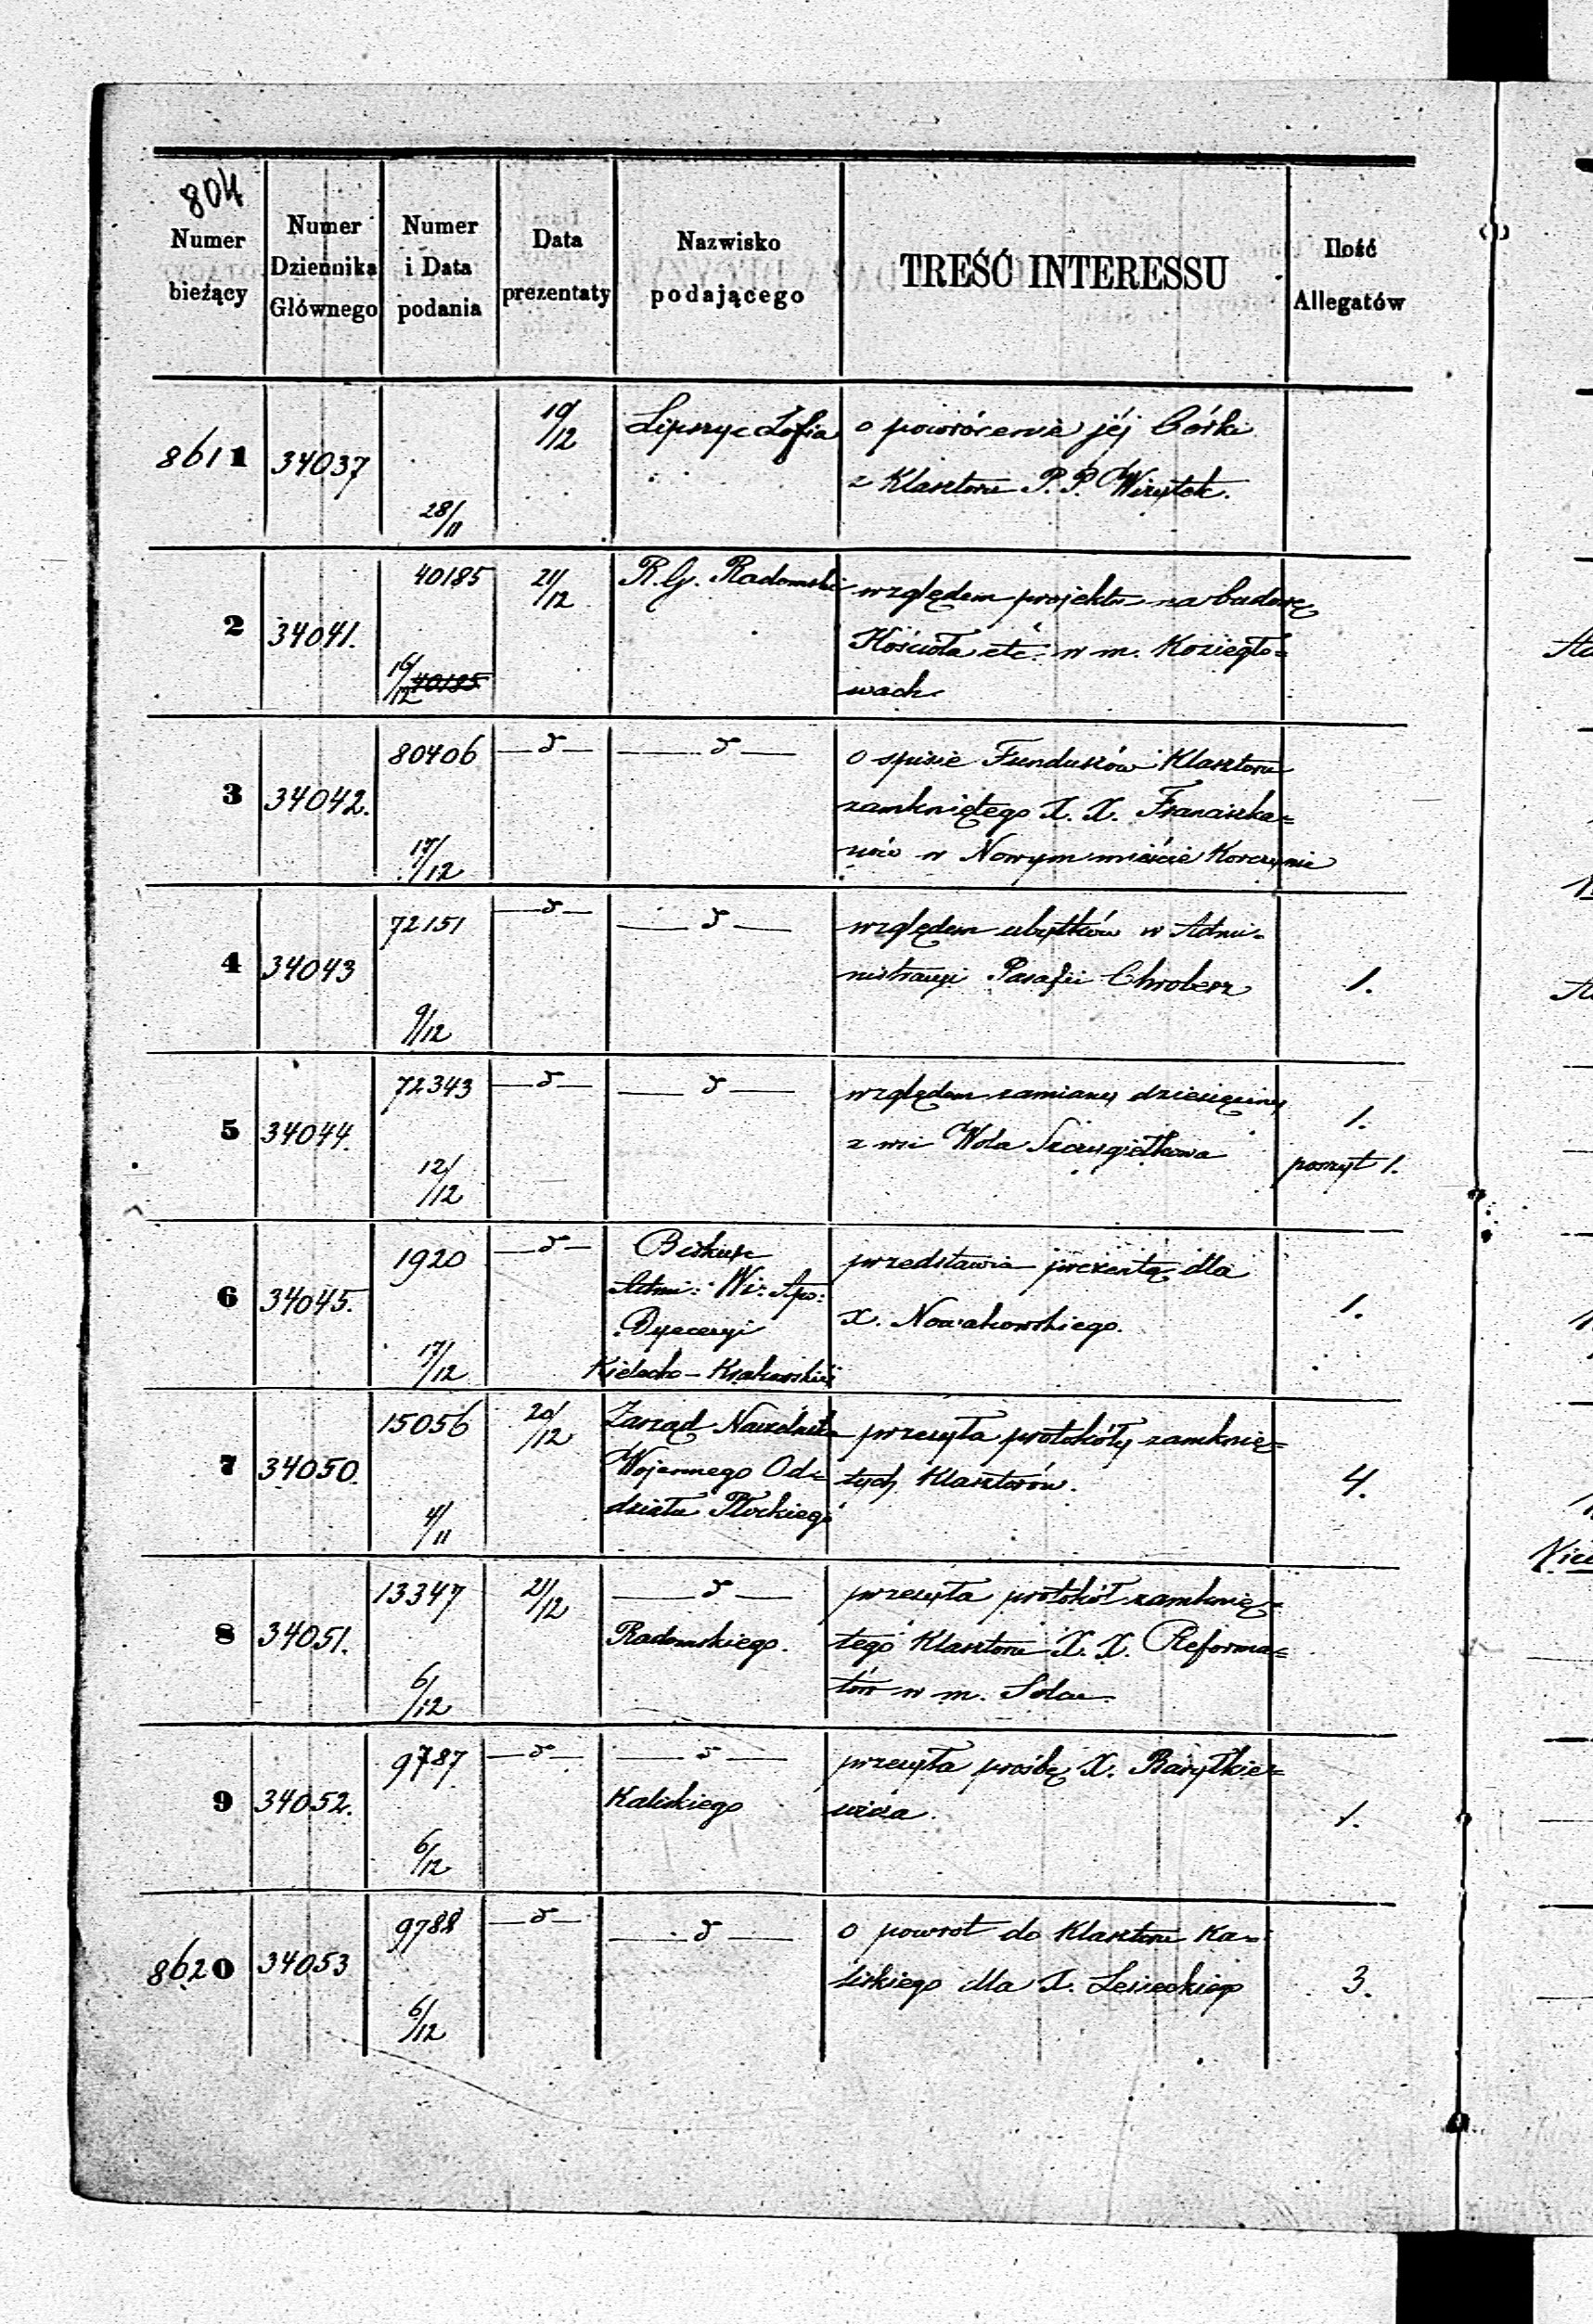 804
Numer bieżący
Numer Dziennika Głównego
Numer i Data podania
Data prezentaty
Nazwisko podającego
TREŚĆ INTERESSU
Ilość Allegatów
8611 34037 28/11 19/12 Lipszyc Zofia o powrócenie jéj Córki
z Klasztoru P. P. Wizytek.
2 34041. 40185 16/12 40185 21/12 R. G. Radomski względem projektu na budowę
Kościoła etc: w m. Koziegło=
wach.
3 34042. 80406 17/12 — d — — d — o spisie Funduszów Klasztoru
zamkniętego X. X. Franciszka=
nów w Nowym mieście Korczynie
4 34043 72151 9/12 — d — — d — względem ubytków w Admi=
nistracyi Parafii Chroberz 1.
5 34044. 72343 12/12 — d — — d — względem zamiany dziesięciny
z wsi Wola 1.
poszyt 1.
6 34045. 1920 17/12 — d — Biskup
Admi: Wi: Apo:
Dyecezyi
Kielecko - Krakowskiéj
przedstawia prezentę dla
X. Nowakowskiego. 1.
7 34050. 15056 4/11 20/12 Zarząd Naczelnika
Wojennego Od=
działu Płockiego
przesyła protokóły zamknię=
tych Klasztorów. 4.
8 34051. 13347 6/12 21/12 — d —
Radomskiego.
przesyła protokół zamknię=
tego Klasztoru X. X. Reforma=
tów w m. Solcu.
9 34052. 9787 6/12 — d — — d —
Kaliskiego
przesyła prośbę X. Baryłkie=
wicza. 1.
8620 34053 9788 6/12 — d — — d — o powrot do Klasztoru Ka=
liskiego dla X. Lesieckiego 3.